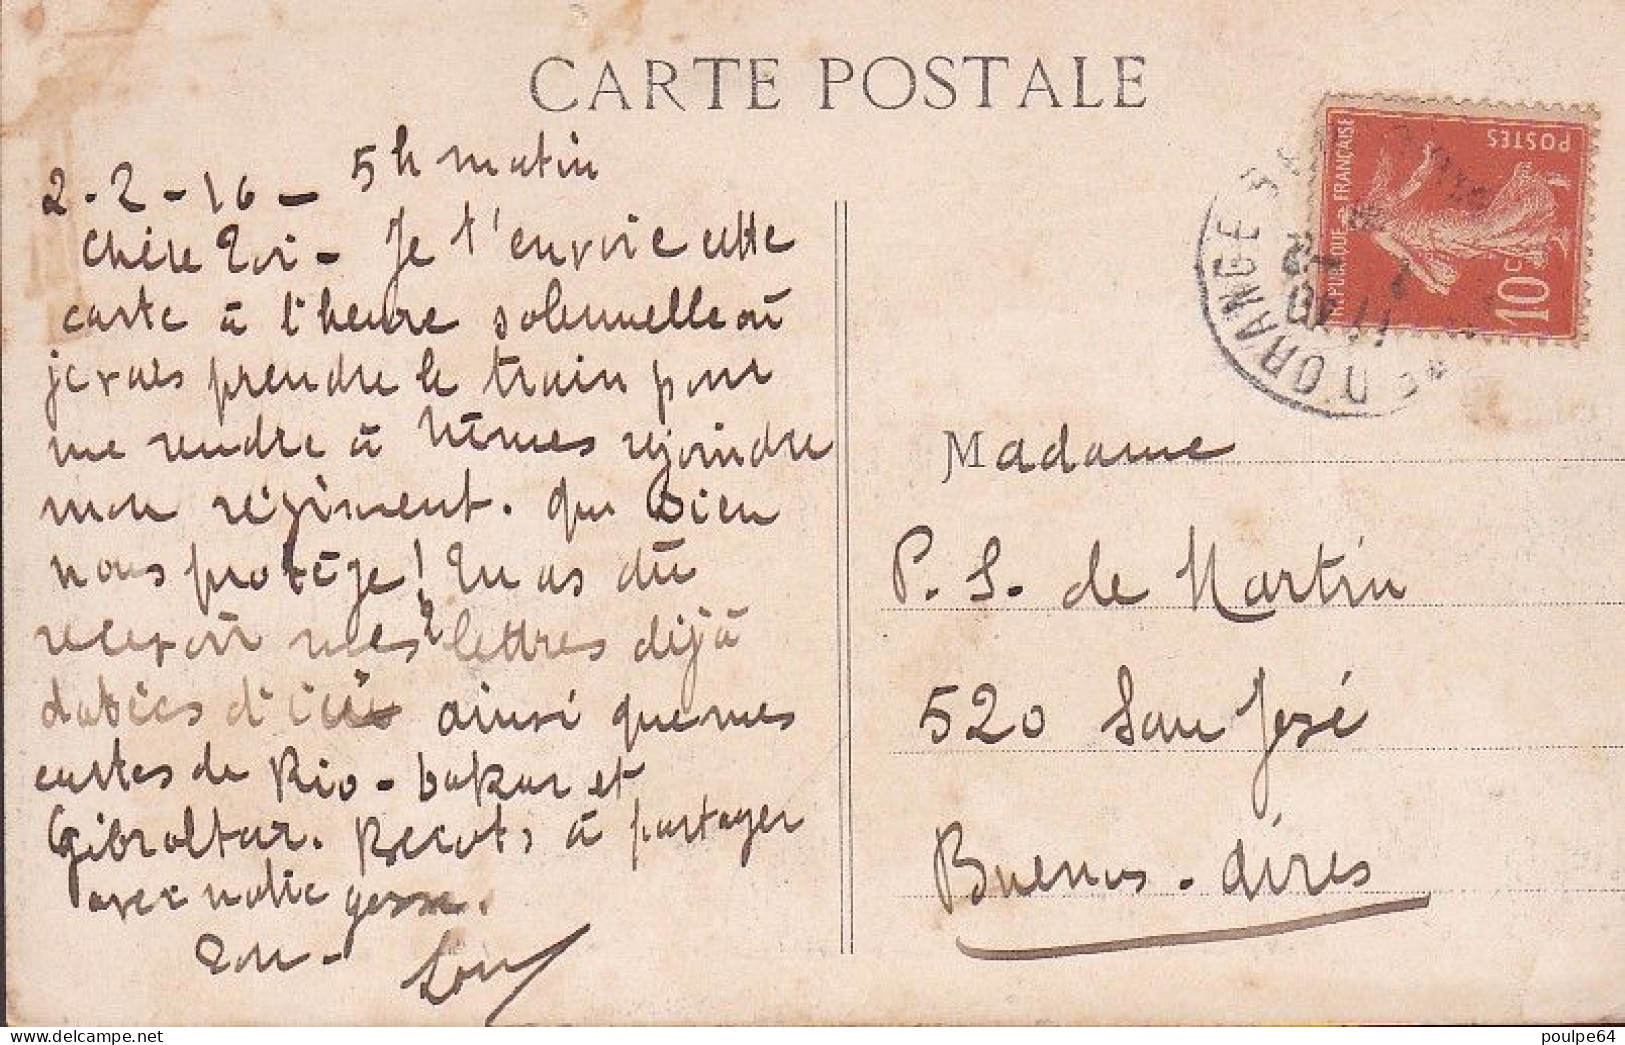 CARTE POSTALE
2-2-16- 5h matin
Chère Toi - Je t'envoie cette
carte à l'heure solennelle où
je vais prendre le train pour
me rendre à Nîmes rejoindre
mon régiment. Que Dieu
nous protège! Tu as dû
recevoir mes 2 lettres déjà
datées d'ici ainsi que mes
cartes de Rio - Dakar et
Gibraltar. Becots à partager
avec notre gosse.
Ton -
Madame
P. S. de Martin
520 San José
Buenos-Aires
REPUBLIQUE FRANÇAISE
POSTES
10 C
D'ORANGE
poulpe64